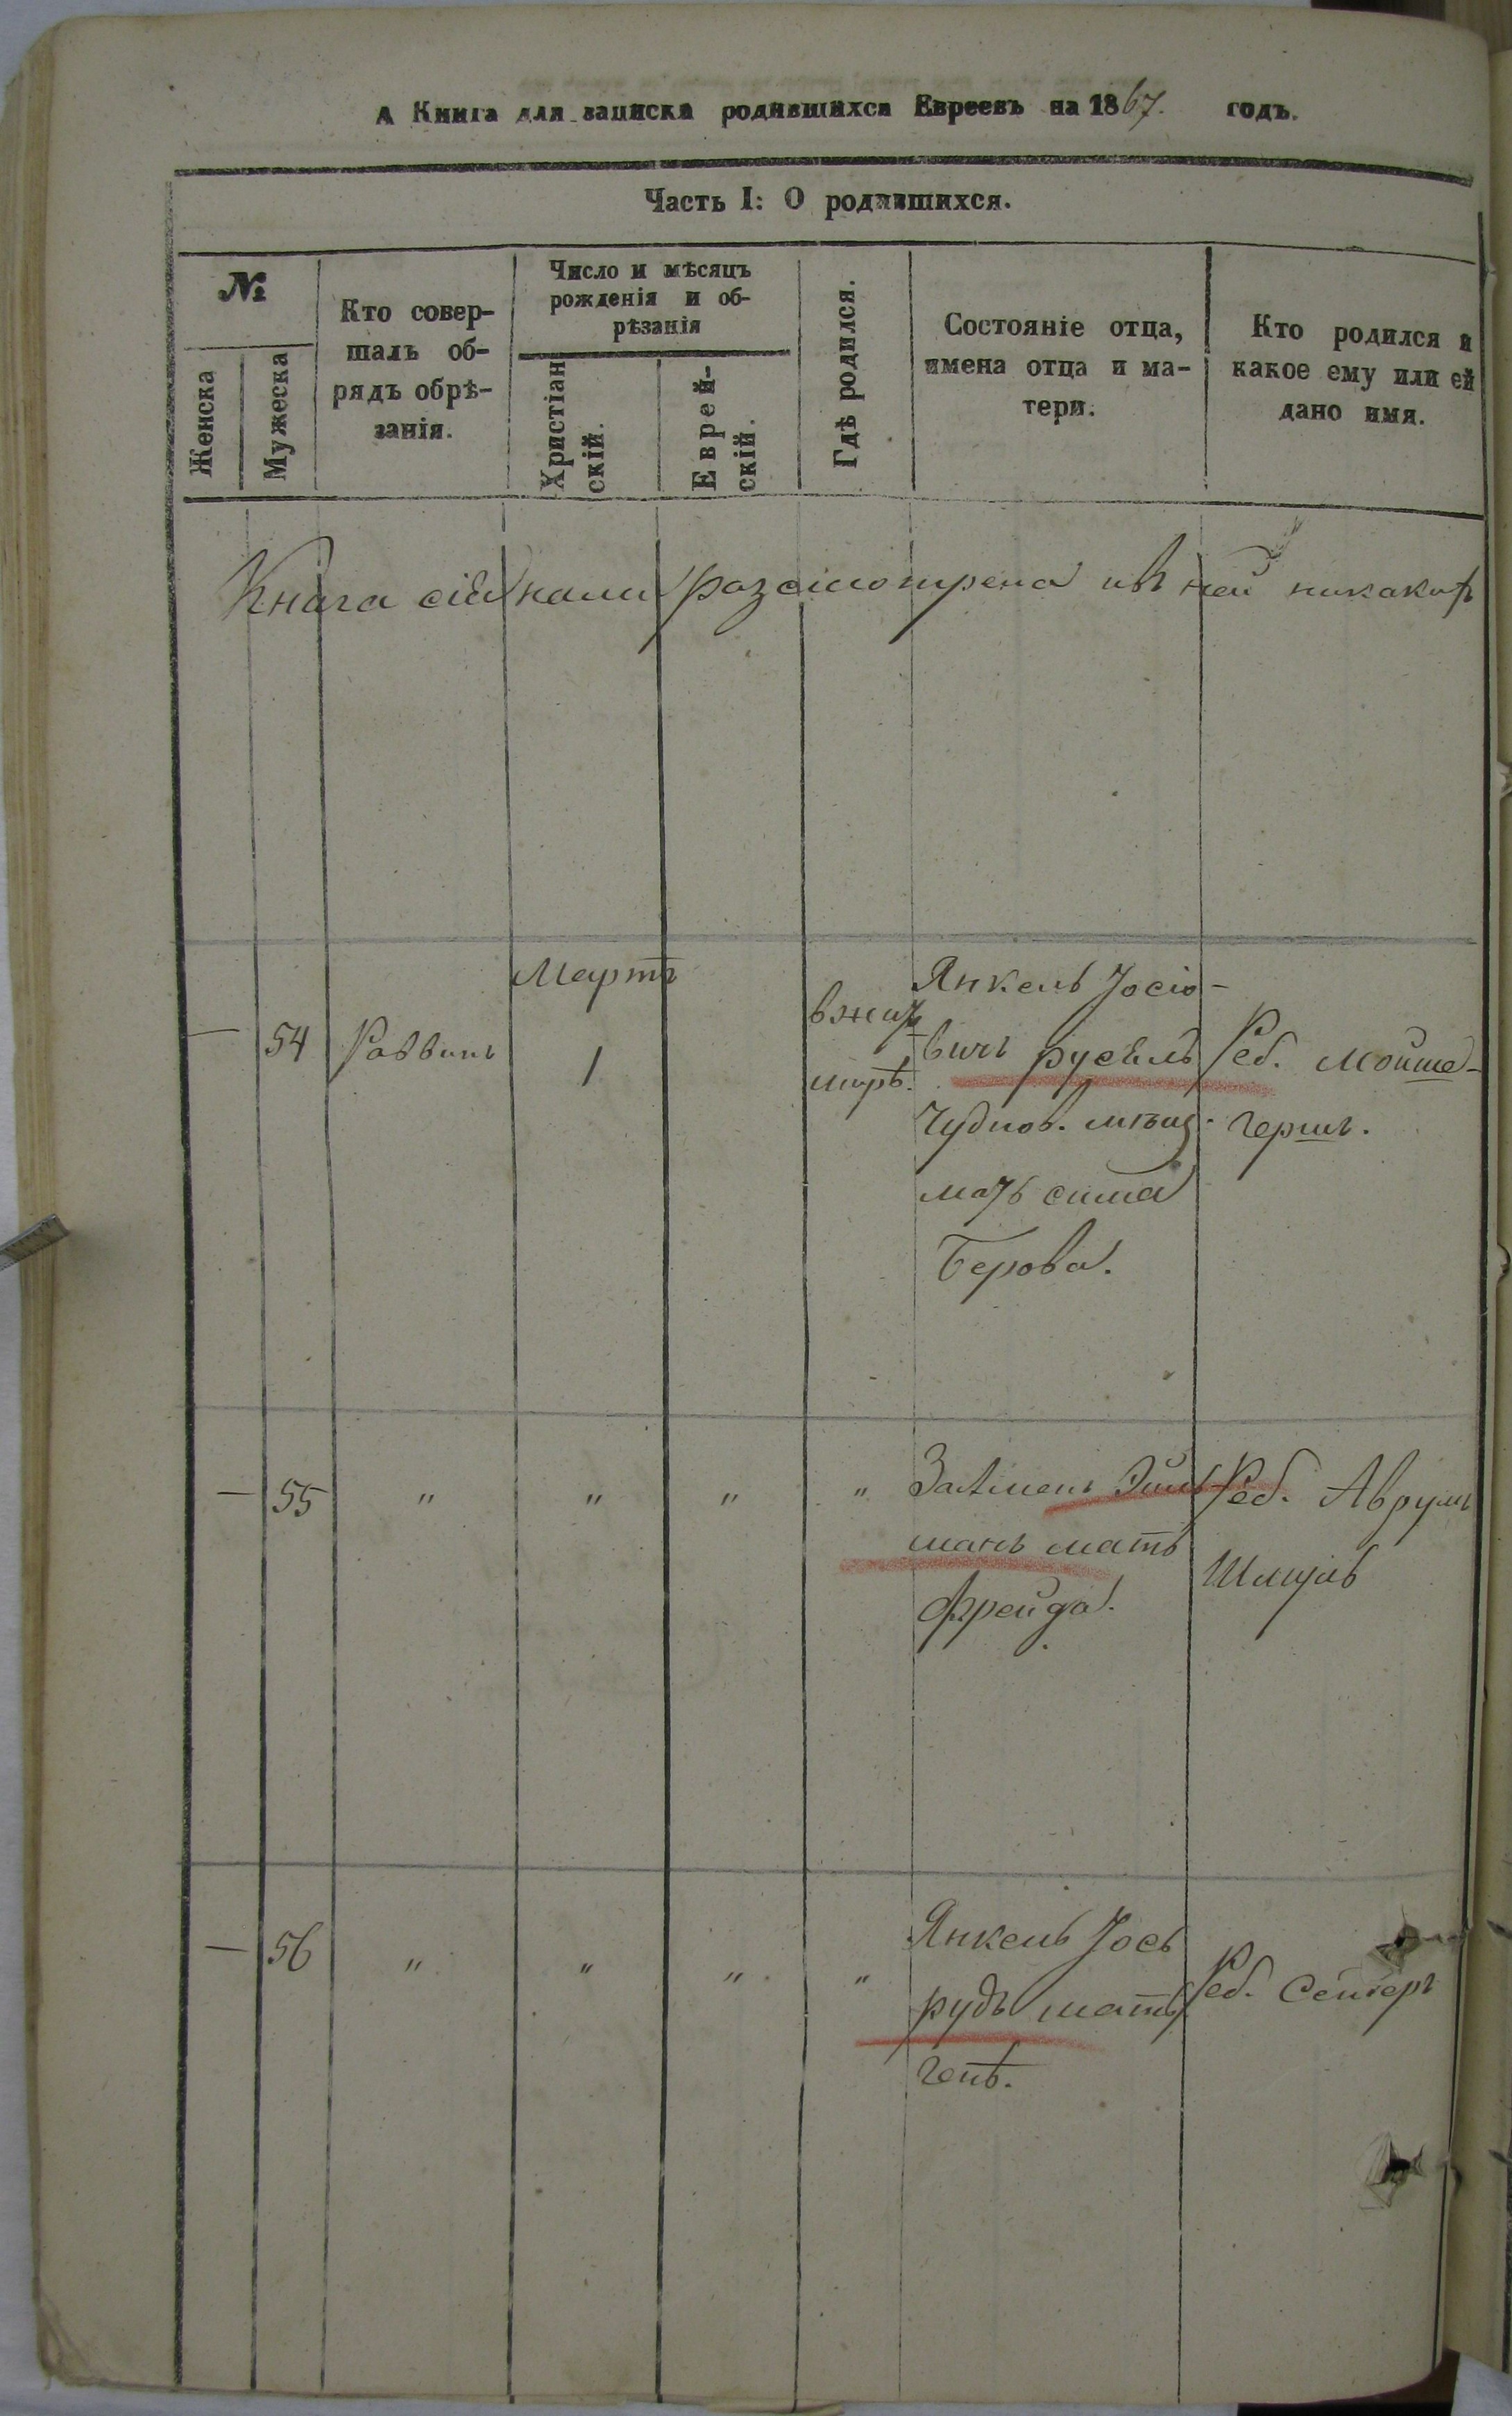 А Книга для записки родившихся Евреевъ на 1867. годъ.
Часть I: О родившихся.
№
Женска
Мужеска
Кто совер-
шалъ об-
рядъ обрѣ-
занія.
Число и мѣсяцъ
рожденія и об-
рѣзанія
Христіан
скій.
Еврей-
скій.
Гдѣ родился.
Состояніе отца,
имена отца и ма-
тери.
Кто родился и
какое ему или ей
дано имя.
Книга сія нами разсмотрена и въ ней никакихъ
— 54 Раввинъ
Мартъ
1
в жит
мирѣ.
Янкель Іосіо-
вичъ
Чуднов. мѣщ.
мать сима
Берова.
Реб. Мойше-
Гершъ.
— 55 " " " "
Залменъ Эйль
манъ мать
фрейда.
Реб. Аврумъ
Шмуль
— 56 " " " "
Янкель Іось
рудъ мать
Реб.